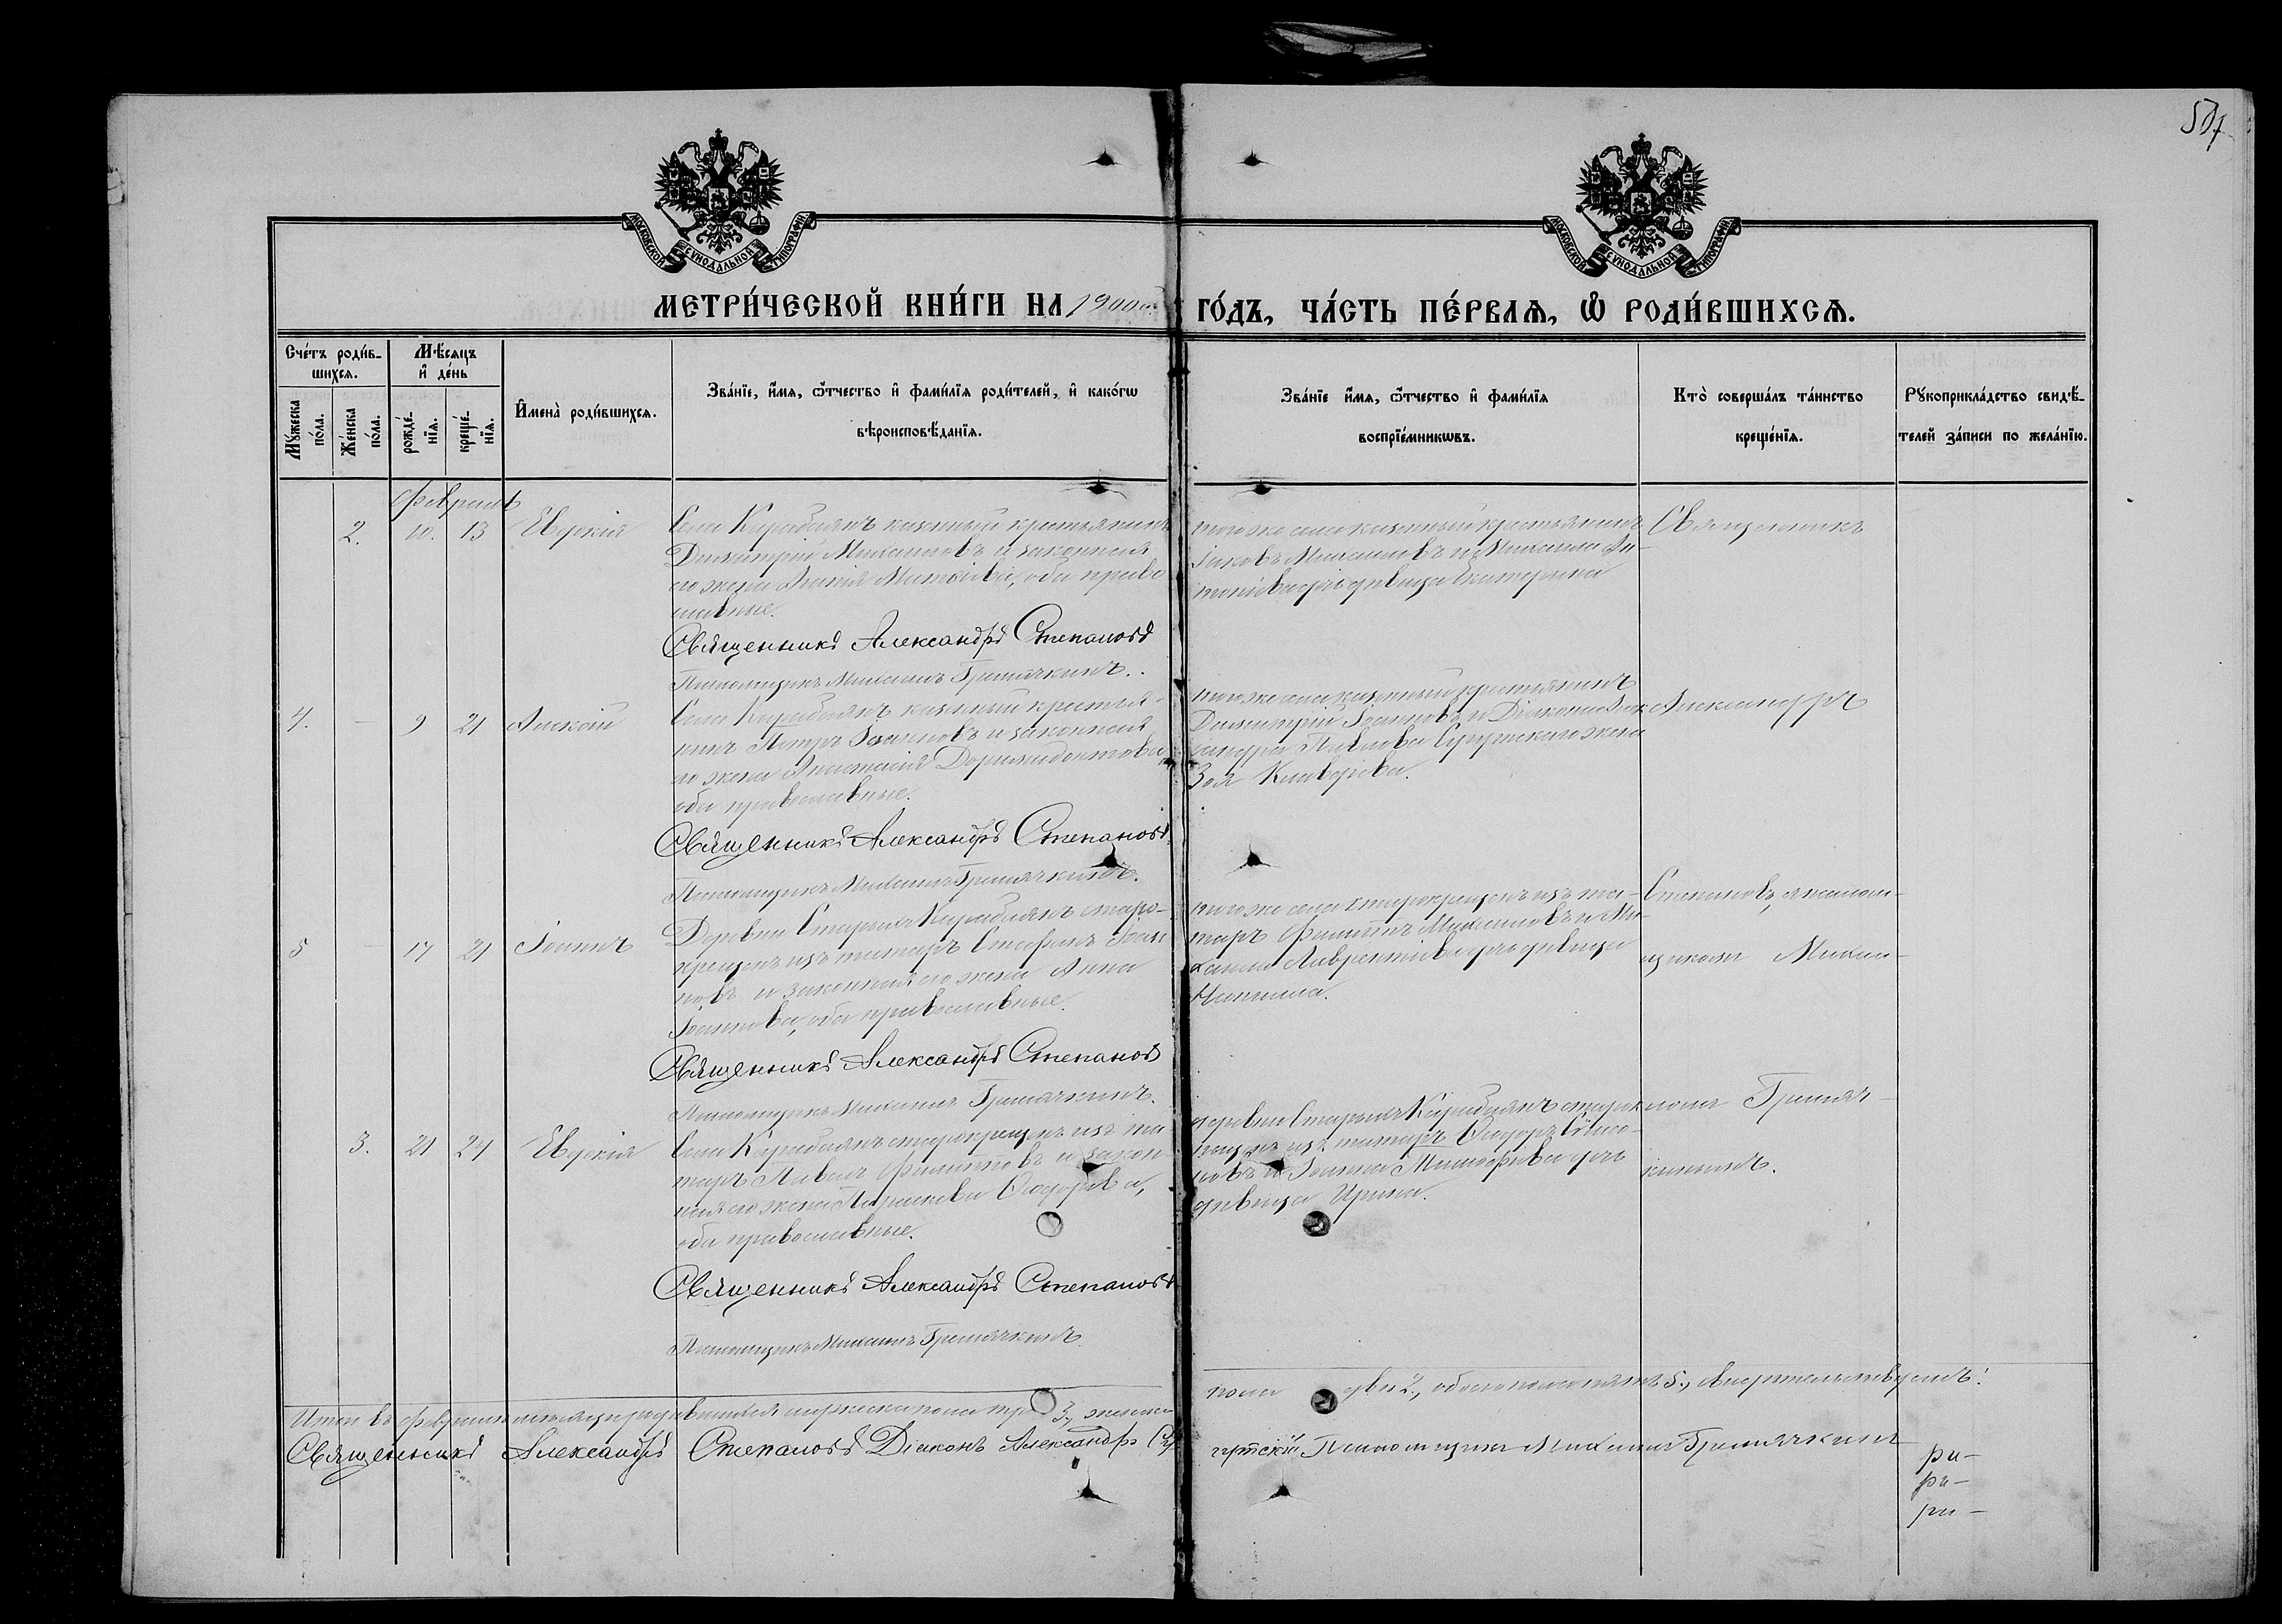 507
МОСКОВСКОЙ СѴНОДАЛЬНОЙ ТИПОГРАФІИ
МОСКОВСКОЙ СѴНОДАЛЬНОЙ ТИПОГРАФІИ
МЕТРИ́ЧЕСКОЙ КНИ́ГИ НА 1900 ГО́ДЪ, ЧА́СТЬ ПЕ́РВАѦ, Ѡ҆ РОДИ́ВШИХСѦ.
Сче́тъ роди́в-
шихсѧ.
Мꙋ́жеска по́ла.
Же́нска по́ла.
Мѣ́сѧцъ
и҆ де́нь
рожде́-
нїѧ.
креще́-
нїѧ.
И҆мена̀ роди́вшихсѧ.
Зва́нїе, и҆́мѧ, ѻ҆́тчество и҆ фами́лїѧ роди́телей, и҆ како́гѡ
вѣроисповѣ́данїѧ.
Зва́нїе и҆́мѧ, ѻ҆́тчество и҆ фами́лїѧ
воспрїе́мникѡвъ.
Кто̀ соверша́лъ та́инство
креще́нїѧ.
Рꙋкоприкла́дство свидѣ́-
телей за́писи по жела́нїю.
Февраль
2. 10. 13 Евдокія
Села Карабаянъ казенный крестьянинъ
Димитрій Михаиловъ и законная
его жена Матѳіева, оба право
славные.
Священникъ Александръ Степановъ
Псаломщикъ Михаилъ Гремячкинъ.
тогоже села казенный крестьянинъ
Іаковъ Михаиловъ и Михаила Ан-
тоніева дочь девица Екатерина
Священникъ
4. — 9 21 Алексій
Села Карабаянъ казенный крестья-
нинъ Петръ Іоанновъ и законная
его жена Анастасія Доримедонтова,
оба православные.
Священникъ Александръ Степановъ
Псаломщикъ Михаилъ Гремячкинъ.
тогоже села казенный крестьянинъ
Димитрій Іоанновъ и Діакона Алек
сандра Павлова жена
Зоя
Александръ
5 — 17 21 Іоаннъ
Деревни Старыхъ Карабаянъ старо-
крещенъ изъ татаръ Стефанъ Іоан
новъ и законная его жена Анна
Іоаннова, оба православные.
Священникъ Александръ Степановъ
Псаломщикъ Михаилъ Гремячкинъ.
тогоже села старокрещенъ изъ та-
таръ Филиппъ Михаиловъ и Ми-
хаила Лаврентіева дочь девица
Степановъ, псалом-
щикомъ Михаи-
3. 21 24 Евдокія
Села Карабаянъ старокрещенъ изъ та
таръ Павелъ Филипповъ и закон
ная его жена Параскева Ѳеодорова,
оба православные.
Священникъ Александръ Степановъ
Псаломщикъ Михаилъ Гремячкинъ.
деревни Старыхъ Карабаянъ старок
рещенъ изъ татаръ Ѳеодоръ Симео-
новъ и Іоанна Тимоѳеева дочь
девица Ирина.
ломъ Гремяч-
кинымъ.
Итого въ Февралѣ месяцѣ родившихся мужеска пола три 3., женска
пола две 2., обоего пола пять 5., свидетельствуемъ:
Священникъ Александръ Степановъ Діаконъ Александръ
Псаломщикъ Михаилъ Гремячкинъ
ри-
ри-
ри-